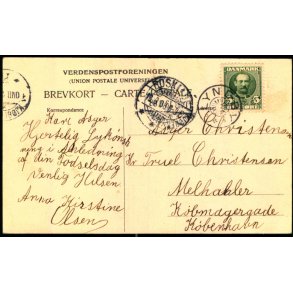 VERDENSPOSTFORENINGEN
(UNION POSTALE UNIVERSELLE)
BREVKORT - CARTE
Korrespondance
DANMARK
5
Kære Asger
Hjertelig Lykønsk
ning i Anledning
af din Fødselsdag
Venlig Hilsen
Anna Kirstine
Olsen
Asger Christensen
Christensen
Købmagergade
København